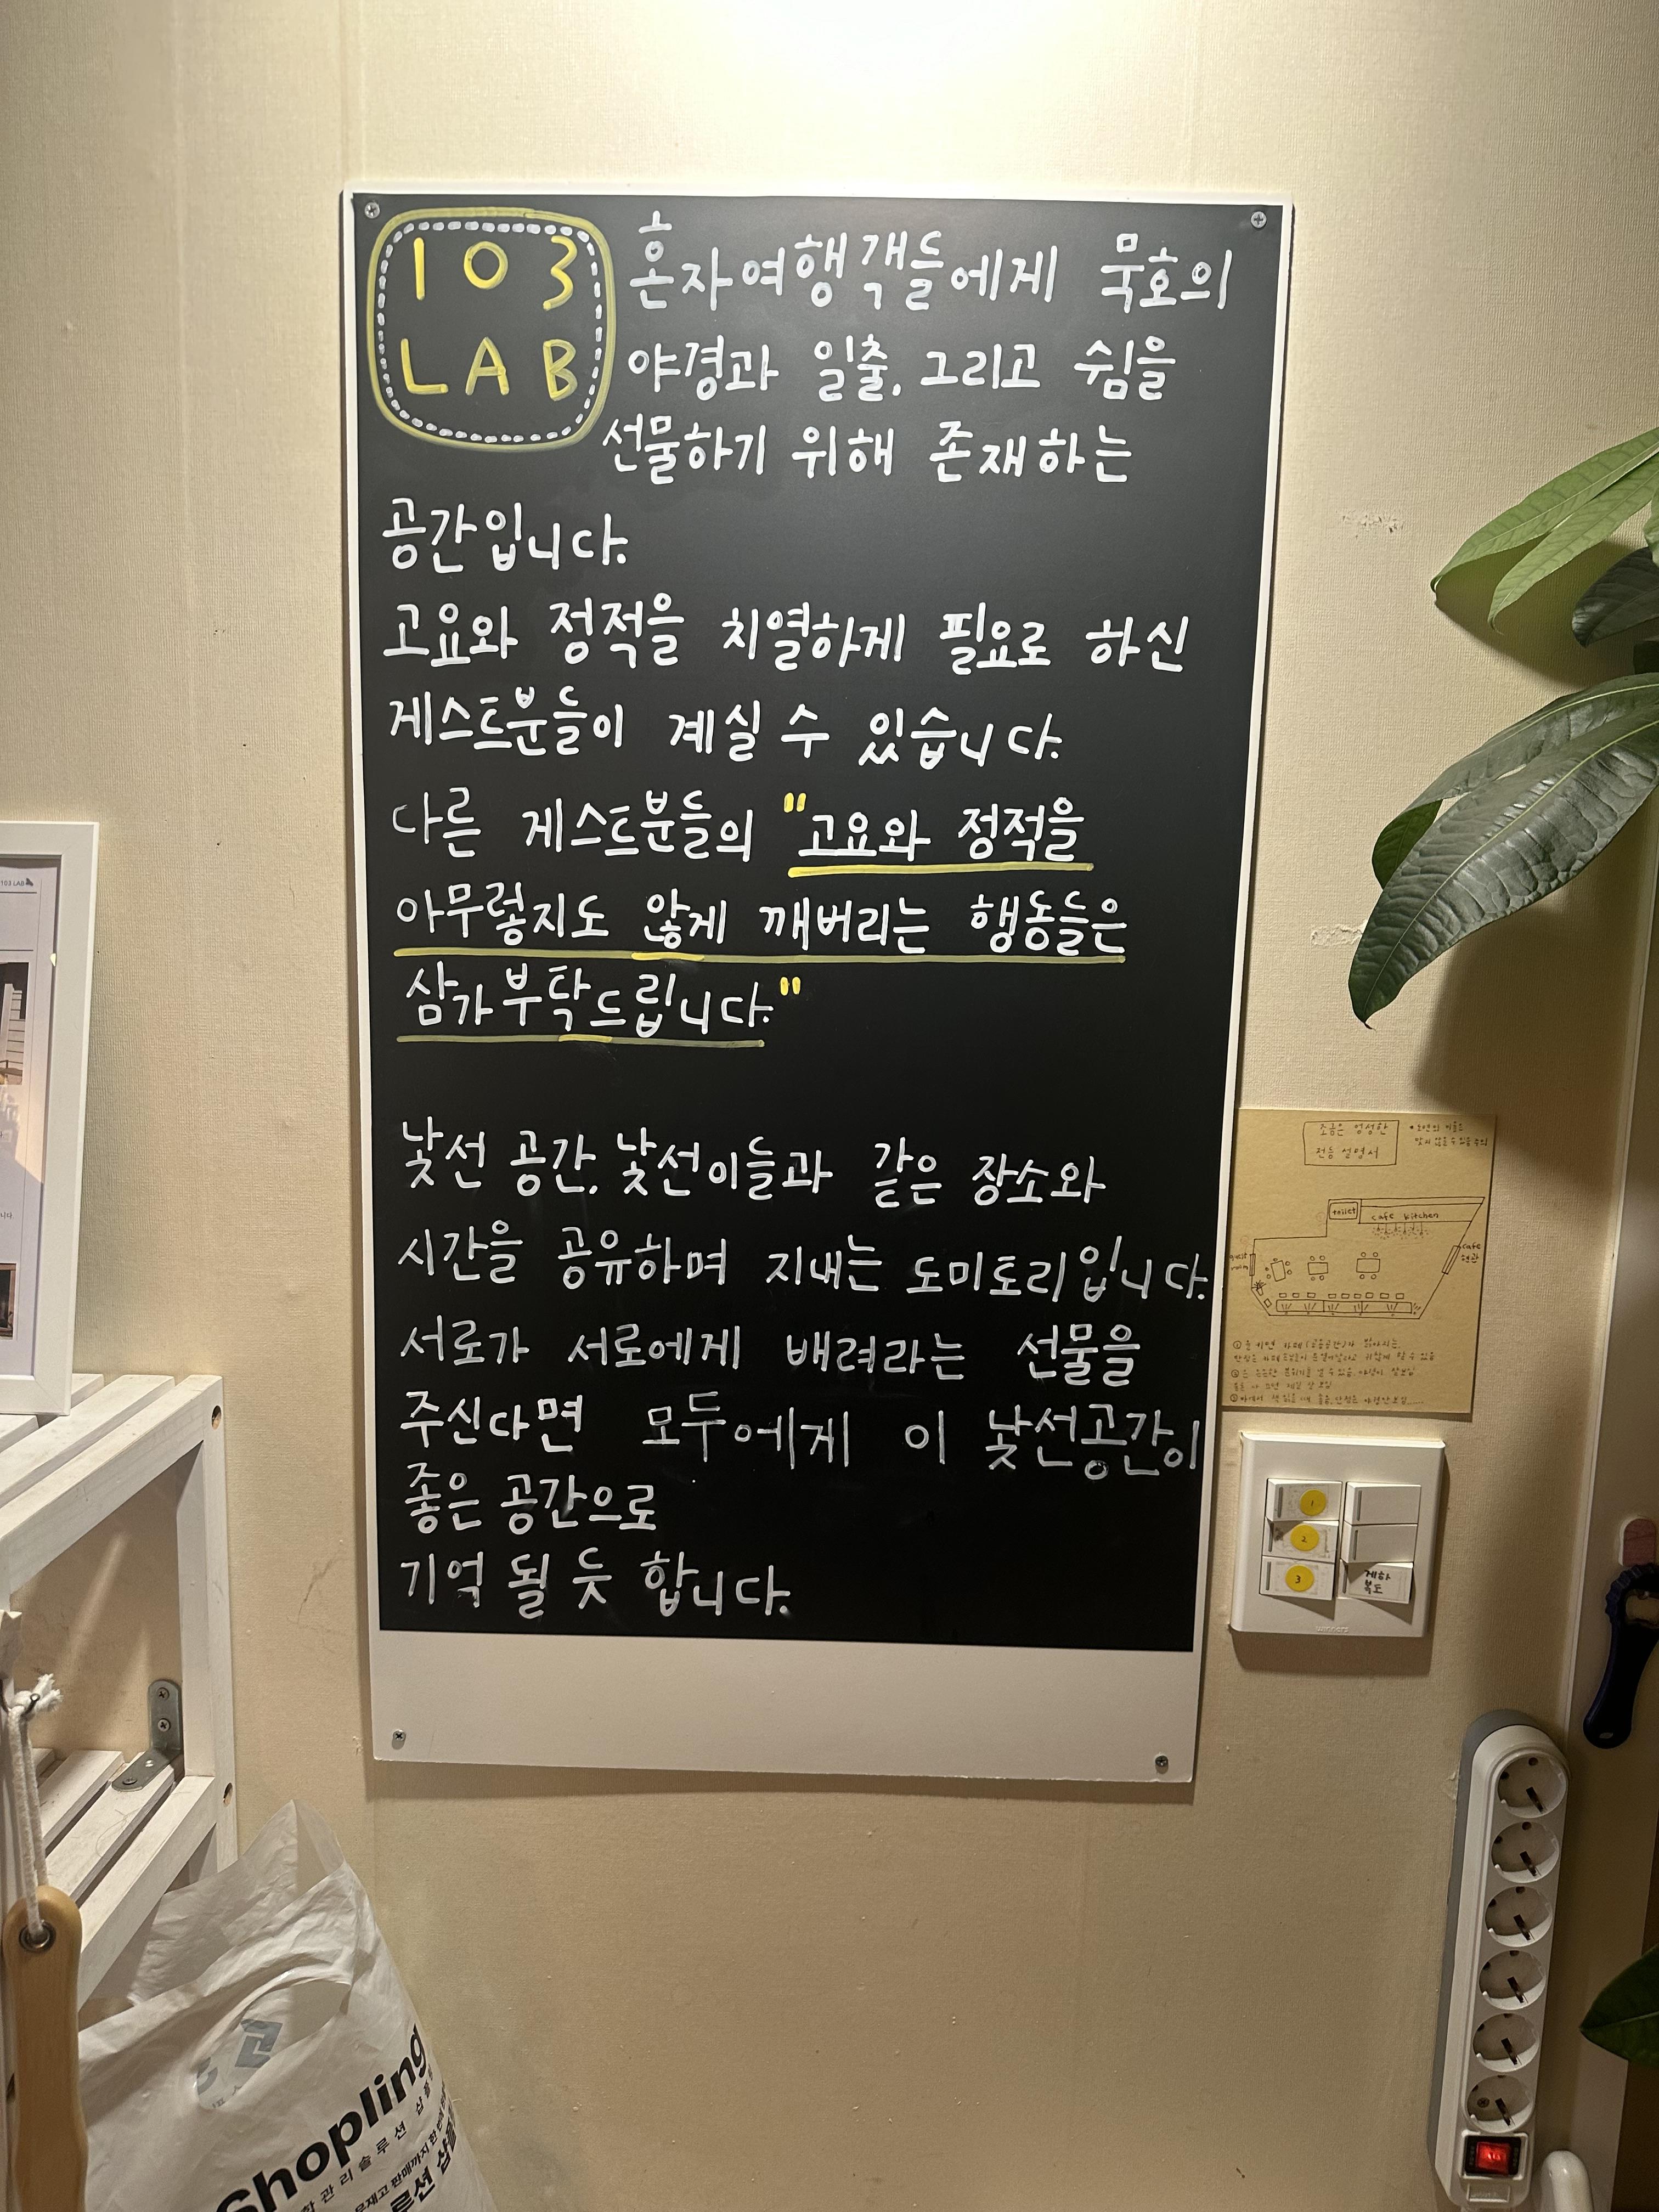 103
LAB
혼자여행객들에게 묵호의
야경과 일출, 그리고 쉼을
선물하기 위해 존재하는
공간입니다.
고요와 정적을 치열하게 필요로 하신
게스트분들이 계실 수 있습니다.
다른 게스트분들의 "고요와 정적을
아무렇지도 않게 깨버리는 행동들은
삼가부탁드립니다."
낯선 공간, 낯선이들과 같은 장소와
시간을 공유하며 지내는 도미토리입니다.
서로가 서로에게 배려라는 선물을
주신다면 모두에게 이 낯선공간이
좋은 공간으로
기억 될 듯 합니다.
103 LAB
조금은 엉성한
전등 설명서
toilet
cafe kitchen
cafe
현관
1
2
3
계단
복도
Shopling